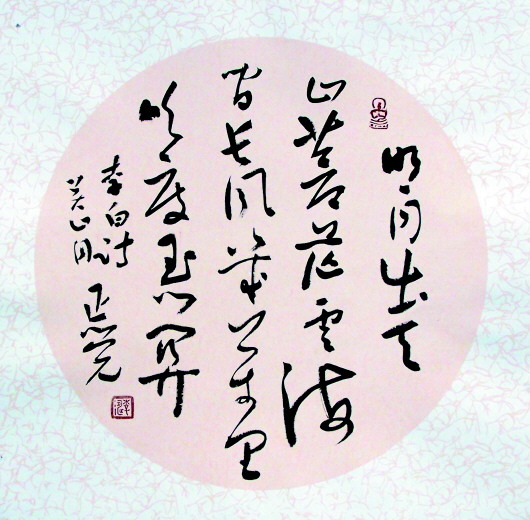 明月出天
山苍茫云海
间长风几万里
吹度玉门关
李白诗
关山月